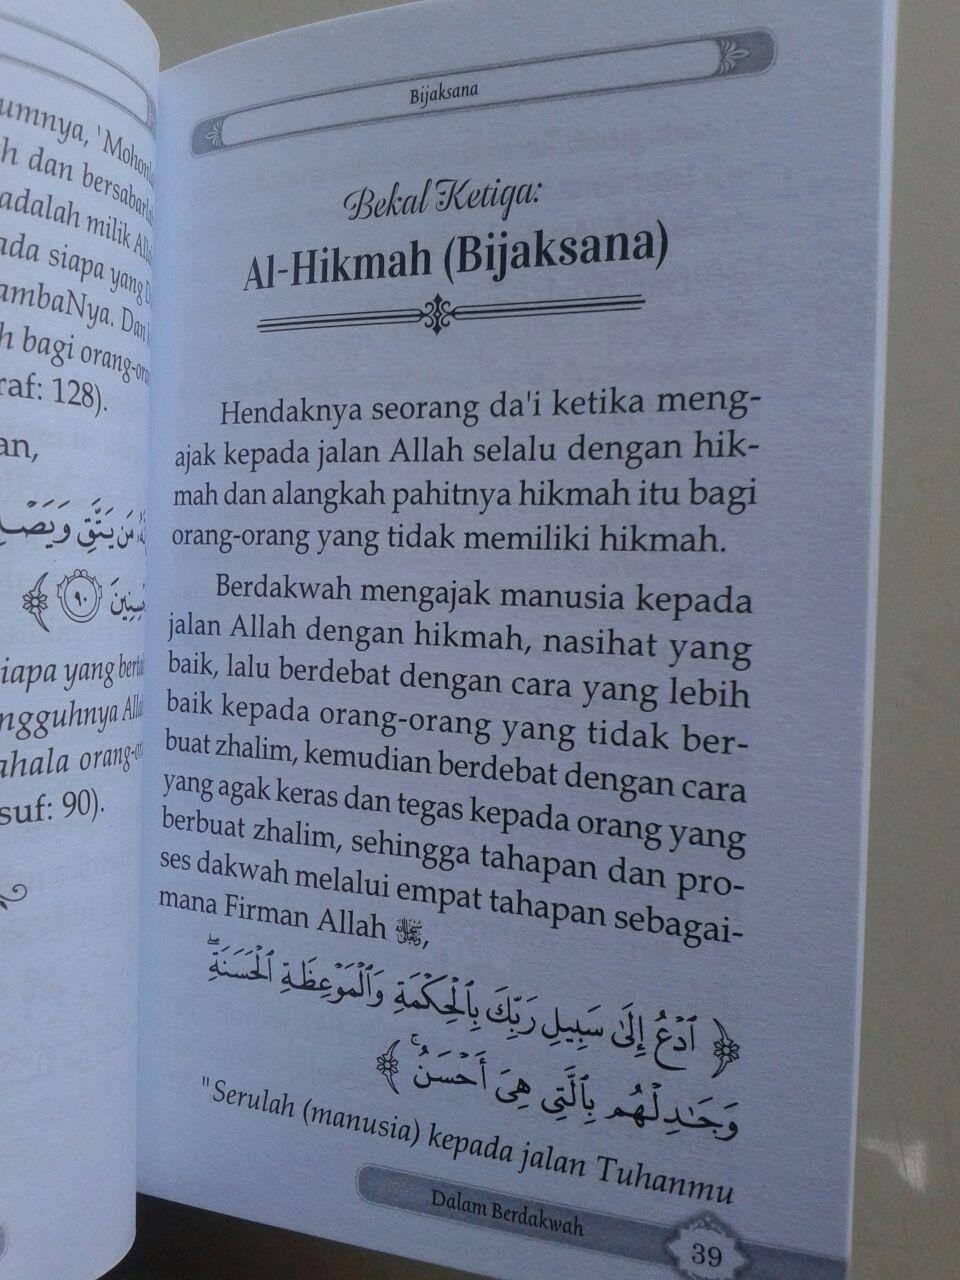 umnya, 'Mohonla
h dan bersabarla
adalah milik Alla
ada siapa yang D
ambaNya. Dan k
h bagi orang-ora
raf: 128).
an,
مَن يَتَّقِ وَيَصۡ
سِنِينَ ٩٠
iapa yang berta
ngguhnya Alla
ahala orang-o
suf: 90).
Bijaksana
Bekal Ketiga:
Al-Hikmah (Bijaksana)
Hendaknya seorang da'i ketika meng-
ajak kepada jalan Allah selalu dengan hik-
mah dan alangkah pahitnya hikmah itu bagi
orang-orang yang tidak memiliki hikmah.
Berdakwah mengajak manusia kepada
jalan Allah dengan hikmah, nasihat yang
baik, lalu berdebat dengan cara yang lebih
baik kepada orang-orang yang tidak ber-
buat zhalim, kemudian berdebat dengan cara
yang agak keras dan tegas kepada orang yang
berbuat zhalim, sehingga tahapan dan pro-
ses dakwah melalui empat tahapan sebagai-
mana Firman Allah ,
﴿ ٱدۡعُ إِلَىٰ سَبِيلِ رَبِّكَ بِٱلۡحِكۡمَةِ وَٱلۡمَوۡعِظَةِ ٱلۡحَسَنَةِۖ
وَجَٰدِلۡهُم بِٱلَّتِي هِيَ أَحۡسَنُۚ ﴾
"Serulah (manusia) kepada jalan Tuhanmu
Dalam Berdakwah
39